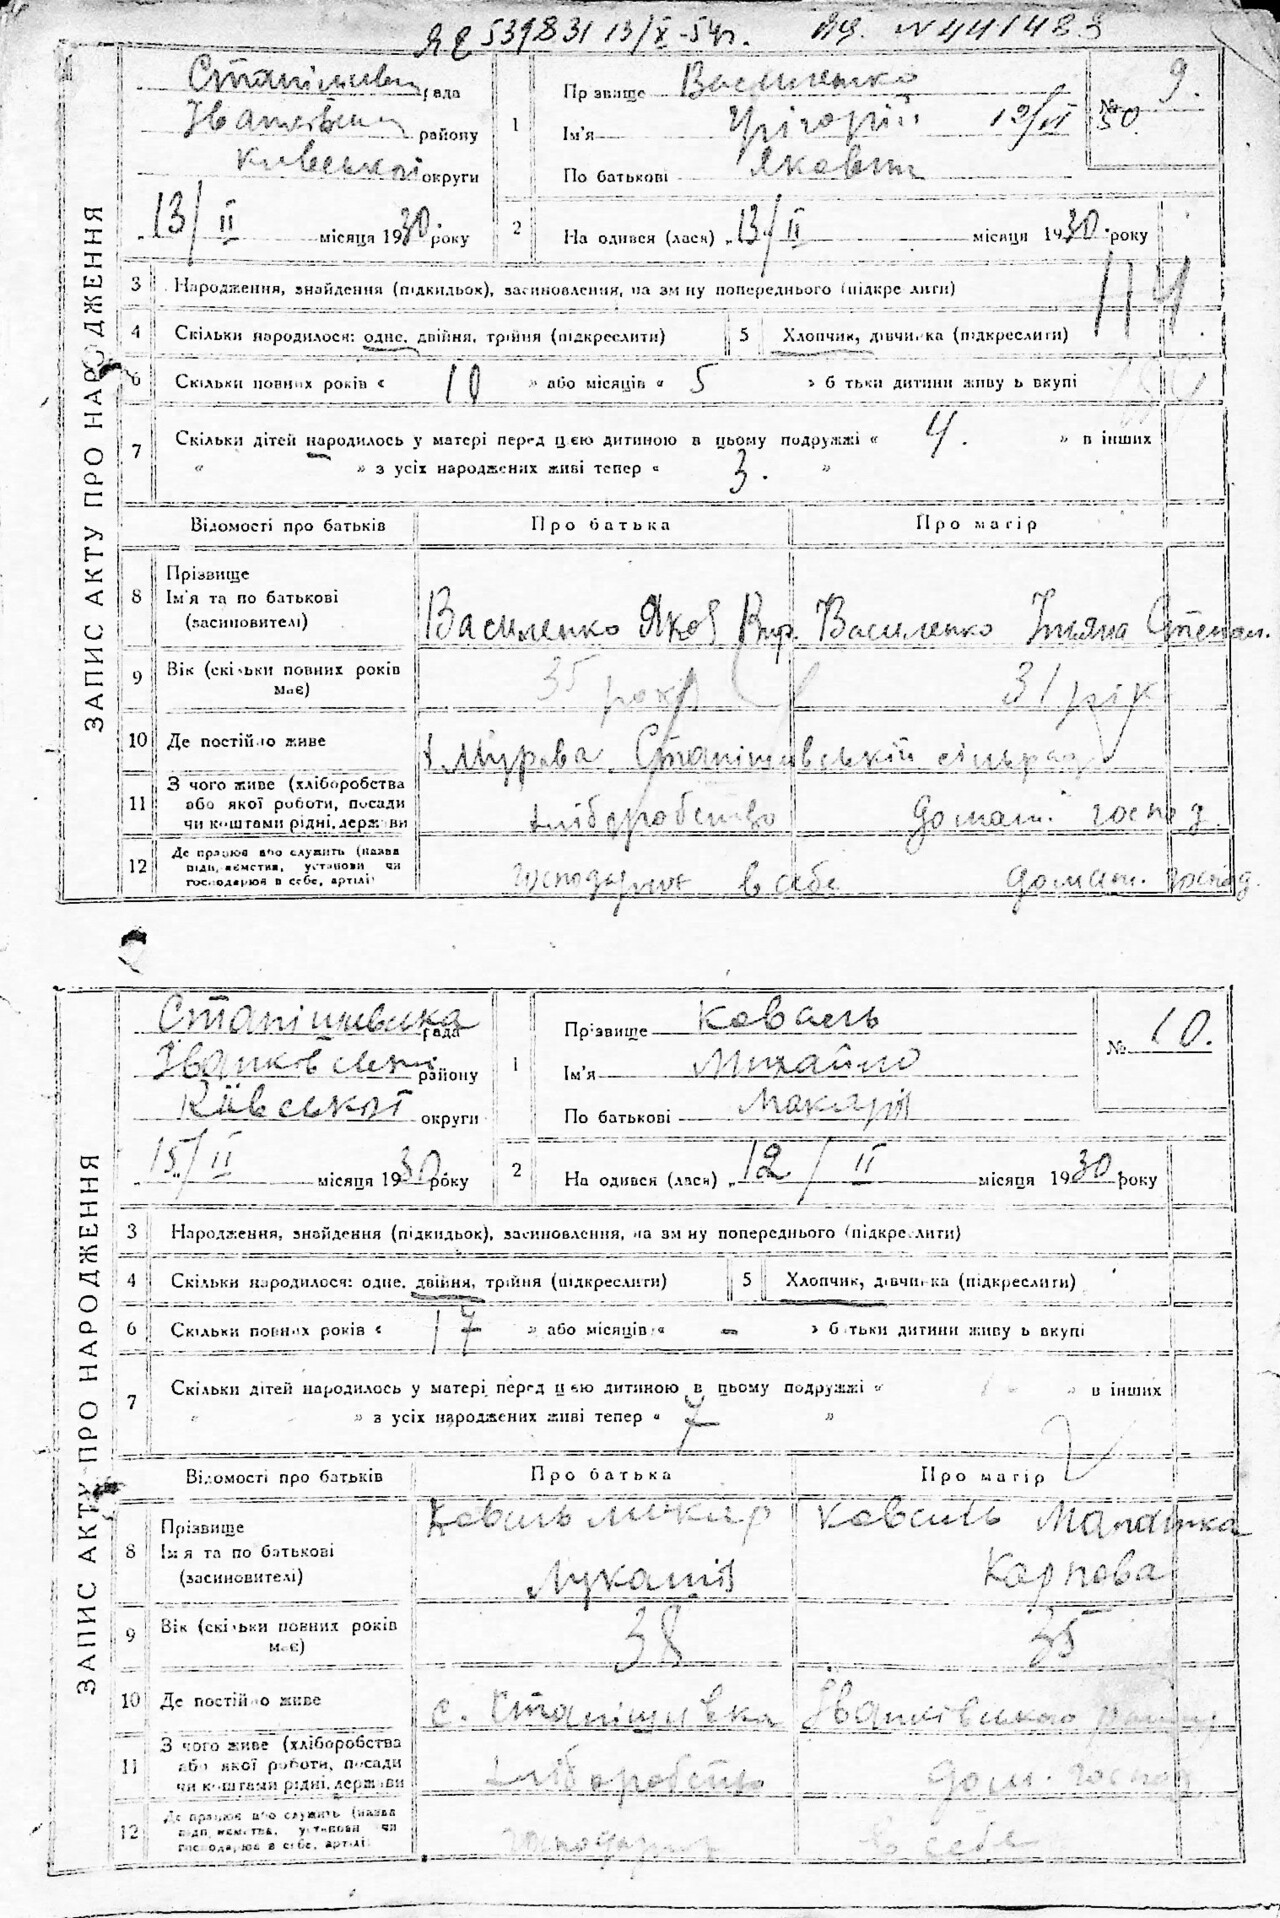 ЯЕ 539831 13/X-54г. № 441483
ЗАПИС АКТУ ПРО НАРОДЖЕННЯ
рада
району
Київської округи
13/II місяця 1930 року
1
Прізвище Василенко
Ім'я Грігорій 12/VI 50.
По батькові Якович
№ 9.
2 Народився (лася) „13/II місяця 1930. року
3 Народження, знайдення (підкидьок), засиновлення, на зміну попереднього (підкреслити)
114
4 Скільки народилося: одне, двійня, трійня (підкреслити) 5 Хлопчик, дівчинка (підкреслити)
6 Скільки повних років « 10 » або місяців « 5 » батьки дитини живуть вкупі
7 Скільки дітей народилось у матері перед цією дитиною в цьому подружжі « 4. » в інших
« » з усіх народжених живі тепер « 3. »
Відомості про батьків Про батька Про матір
8 Прізвище
Ім'я та по батькові
(засиновителі)
Василенко Яков Василенко Степан.
9 Вік (скільки повних років має) 35 років 31 рік
10 Де постійно живе х. Мурава Станішівській сільрад
11 З чого живе (хліборобства або якої роботи, посади чи коштами рідні, держави хліборобство домаш. господ.
12 Де працює або служить (назва підприємства, установи чи господарює в себе, артілі) господарює в себе домаш. господ.
ЗАПИС АКТУ ПРО НАРОДЖЕННЯ
Станішивка рада
району
Київської округи
15/II місяця 1930 року
1
Прізвище Коваль
Ім'я Михайло
По батькові Макарів
№ 10.
2 Народився (лася) „12/II місяця 1930 року
3 Народження, знайдення (підкидьок), засиновлення, на зміну попереднього (підкреслити)
4 Скільки народилося: одне, двійня, трійня (підкреслити) 5 Хлопчик, дівчинка (підкреслити)
6 Скільки повних років « 17 » або місяців « - » батьки дитини живуть вкупі
7 Скільки дітей народилось у матері перед цією дитиною в цьому подружжі « » в інших
« » з усіх народжених живі тепер « 7 »
Відомості про батьків Про батька Про матір
8 Прізвище
Ім'я та по батькові
(засиновителі)
Коваль Макар Коваль
Лукашів Карпова
9 Вік (скільки повних років має) 38 35
10 Де постійно живе с. Станішивка
11 З чого живе (хліборобства або якої роботи, посади чи коштами рідні, держави хліборобство дом. господ
12 Де працює або служить (назва підприємства, установи чи господарює в себе, артілі) господарює в себе